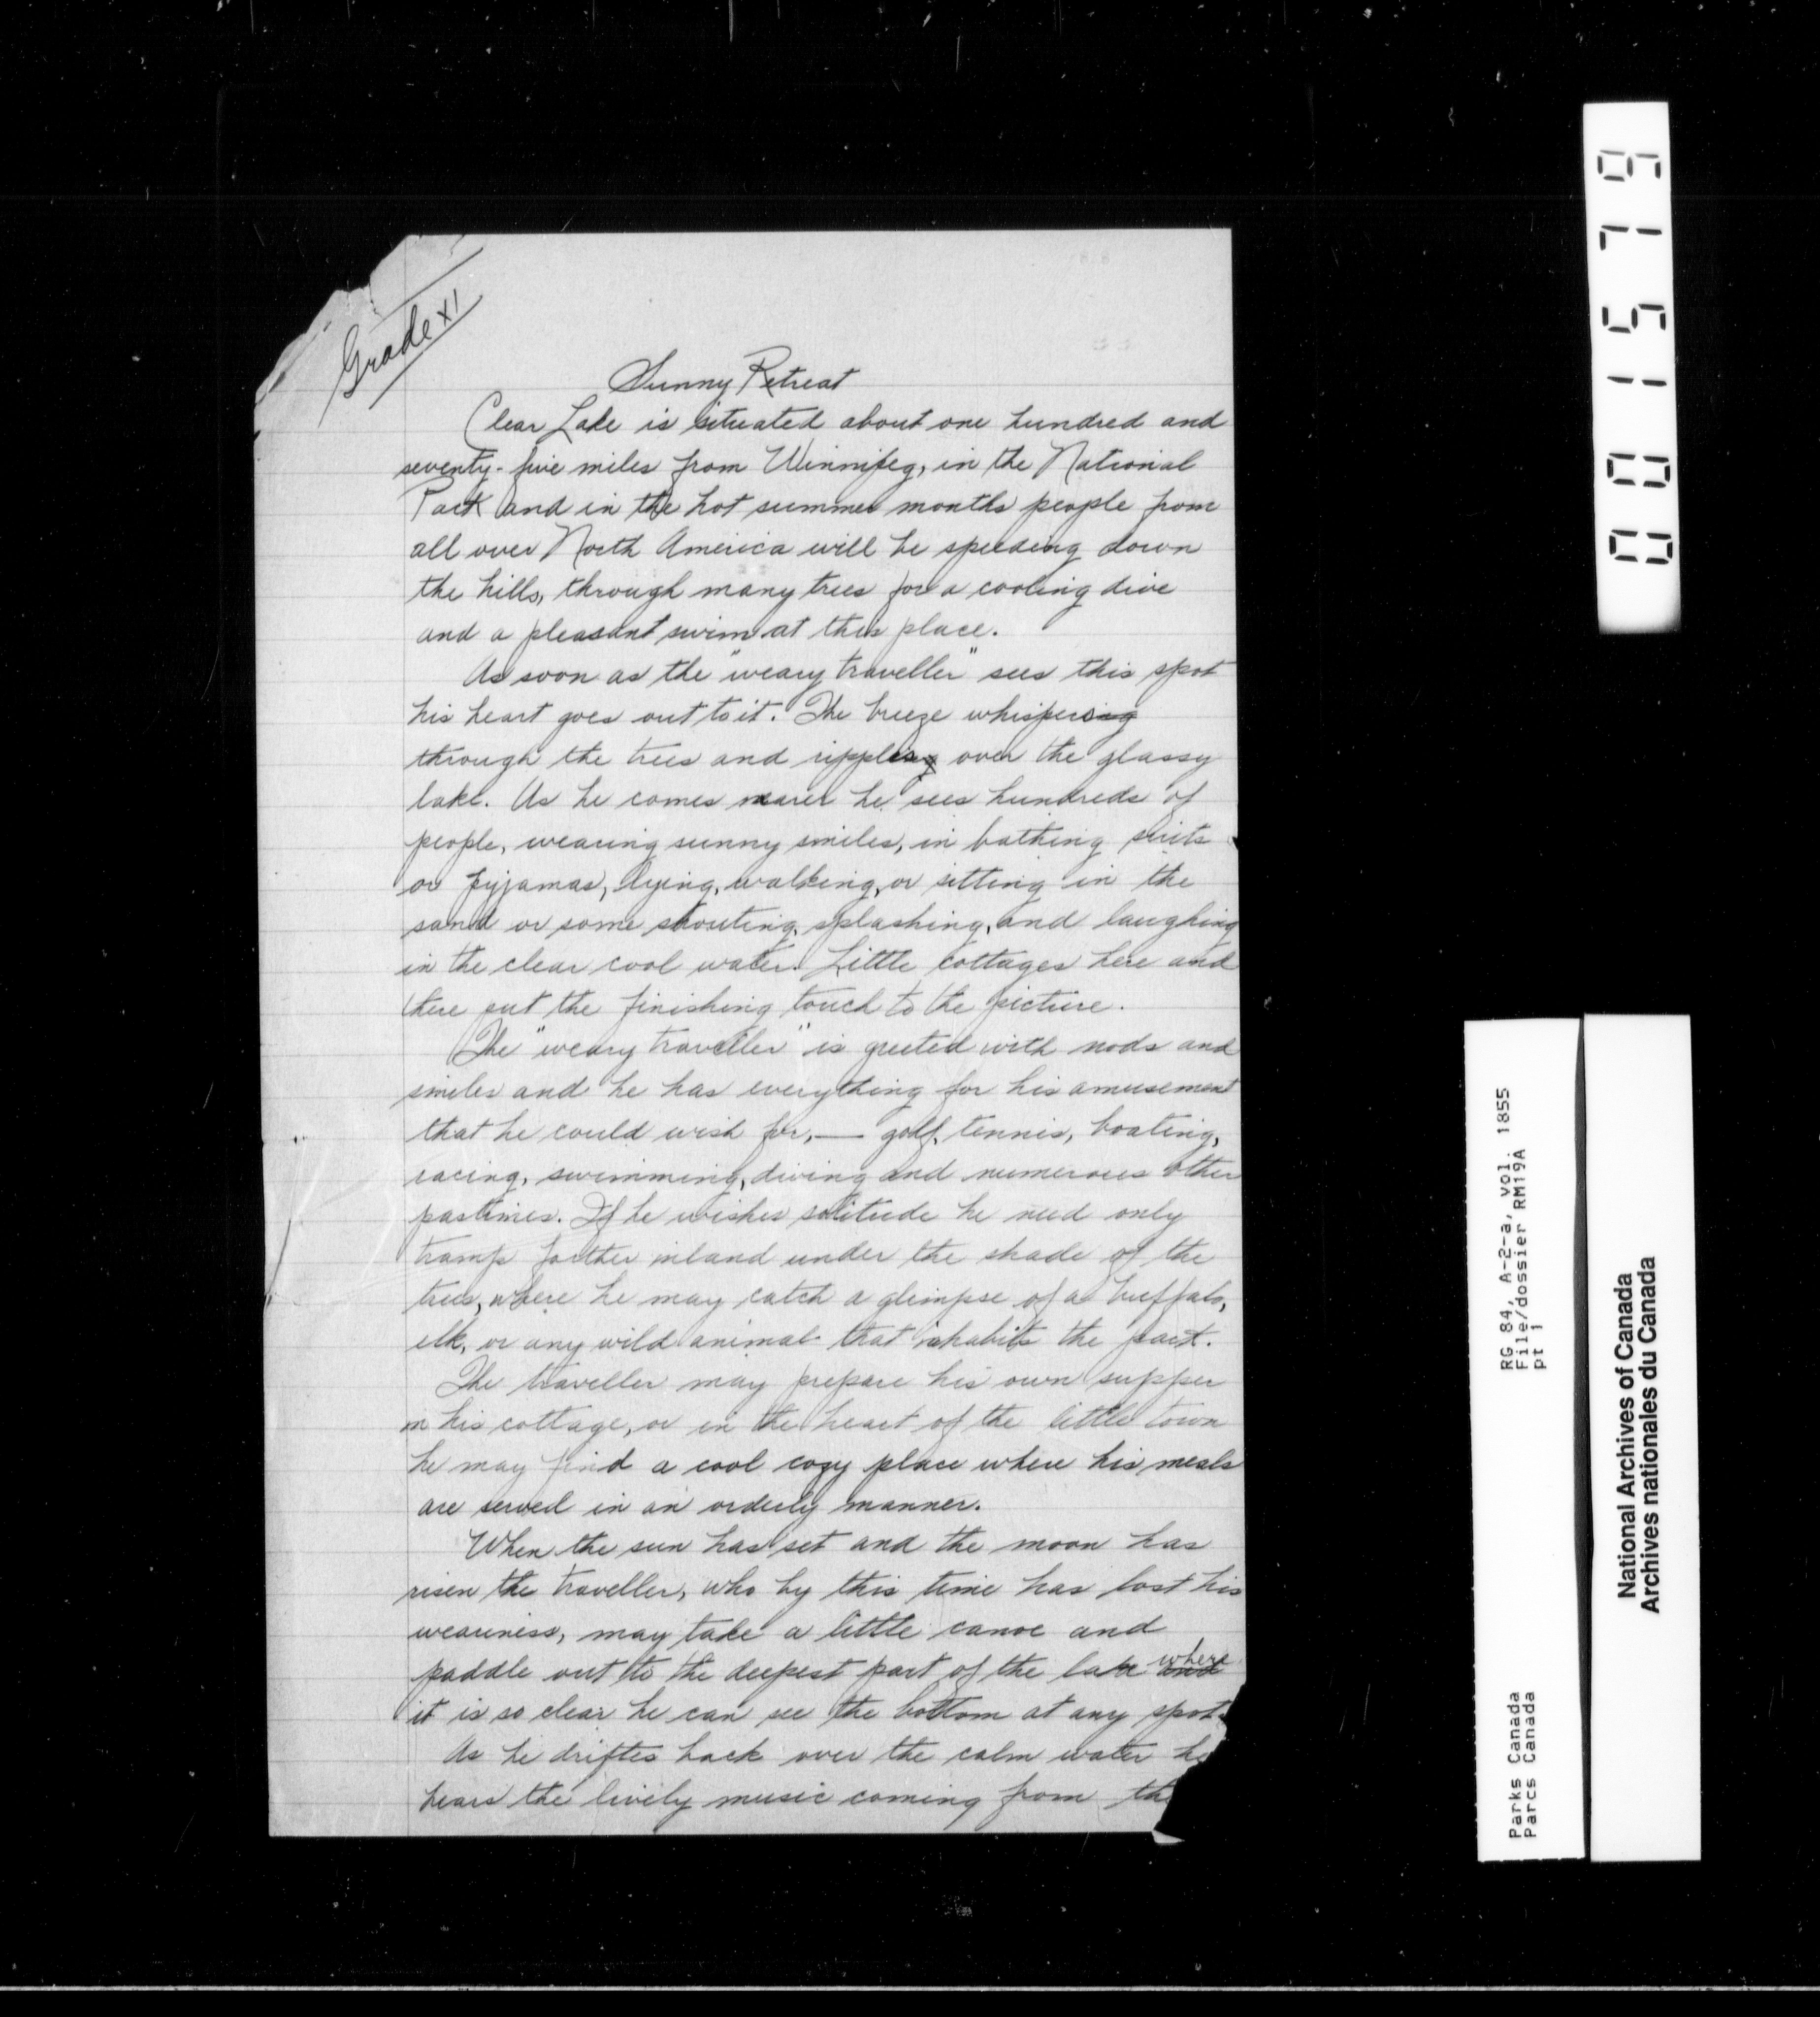 Grade XI
Sunny Retreat
Clear Lake is situated about one hundred and
seventy-five miles from Winnipeg, in the National
Park and in the hot summer months people from
all over North America will be speeding down
the hills, through many trees for a cooling dive
and a pleasant swim at this place.
As soon as the "weary traveller" sees this spot
his heart goes out to it. The breeze whispers
through the trees and ripples over the glassy
lake. As he comes nearer he sees hundreds of
people, wearing sunny smiles, in bathing suits
or pyjamas, lying, walking, or sitting in the
sand or some shouting, splashing, and laughing
in the clear cool water. Little cottages here and
there put the finishing touch to the picture.
The "weary traveller" is greeted with nods and
smiles and he has everything for his amusement
that he could wish for, — golf, tennis, boating,
racing, swimming, diving and numerous other
pastimes. If he wishes solitude he need only
tramp further inland under the shade of the
trees, where he may catch a glimpse of a buffalo,
elk, or any wild animal that inhabits the park.
The traveller may prepare his own supper
in his cottage, or in the heart of the little town
he may find a cool cozy place where his meals
are served in an orderly manner.
When the sun has set and the moon has
risen the traveller, who by this time has lost his
weariness, may take a little canoe and
paddle out to the deepest part of the lake where
it is so clear he can see the bottom at any spot.
As he driftes back over the calm water he
hears the lively music coming from the
001579
RG 84, A-2-a, vol. 1855
File/dossier RM19A
pt 1
Parks Canada
Parcs Canada
National Archives of Canada
Archives nationales du Canada